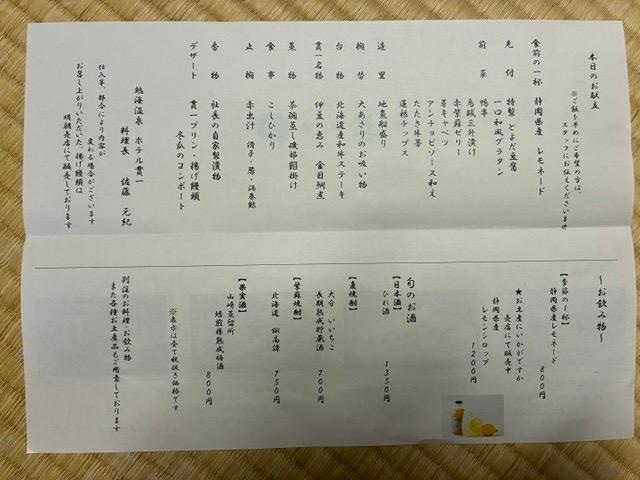 本日のお献立
※ご飯を早めにご希望の方は、
スタッフにお伝えくださいませ
食前の一杯 静岡県産 レモネード
先付 特製 とよだ豆腐
一口和風グラタン
前菜 鴨亭
烏賊三升漬け
赤紫蘇ゼリー
芽キャベツ
アンチョビソース和え
たたき牛蒡
蓮根チップス
造里 地魚船盛り
椀替 大あさりのお吸い物
台物 北海道産和牛ステーキ
貫一名物 伊豆の恵み 金目鯛煮
蒸物 茶碗蒸し磯部餡掛け
食事 こしひかり
止椀 赤出汁 滑子・葱・渦巻麩
香物 社長の自家製漬物
デザート 貫一プリン・揚げ饅頭
冬瓜のコンポート
熱海温泉 ホテル貫一
料理長 佐藤 元紀
仕入等、都合により内容が
変わる場合がございます
お召し上がりいただいた、揚げ饅頭は
明朝売店にて販売しております
~お飲み物~
【季節の1杯】
静岡県産レモネード 800円
★お土産にいかがですか
売店にて販売中
静岡県産
レモンシロップ
1200円
旬のお酒
【日本酒】
ひれ酒 1350円
【麦焼酎】
大分 いいちこ
長期熟成貯蔵酒 700円
【紫蘇焼酎】
北海道 鍛高譚 750円
【果実酒】
山崎蒸留所
焙煎樽熟成梅酒 800円
※表示は全て税抜き価格です
別注のお料理・お飲み物
また各種お土産品もご用意しております